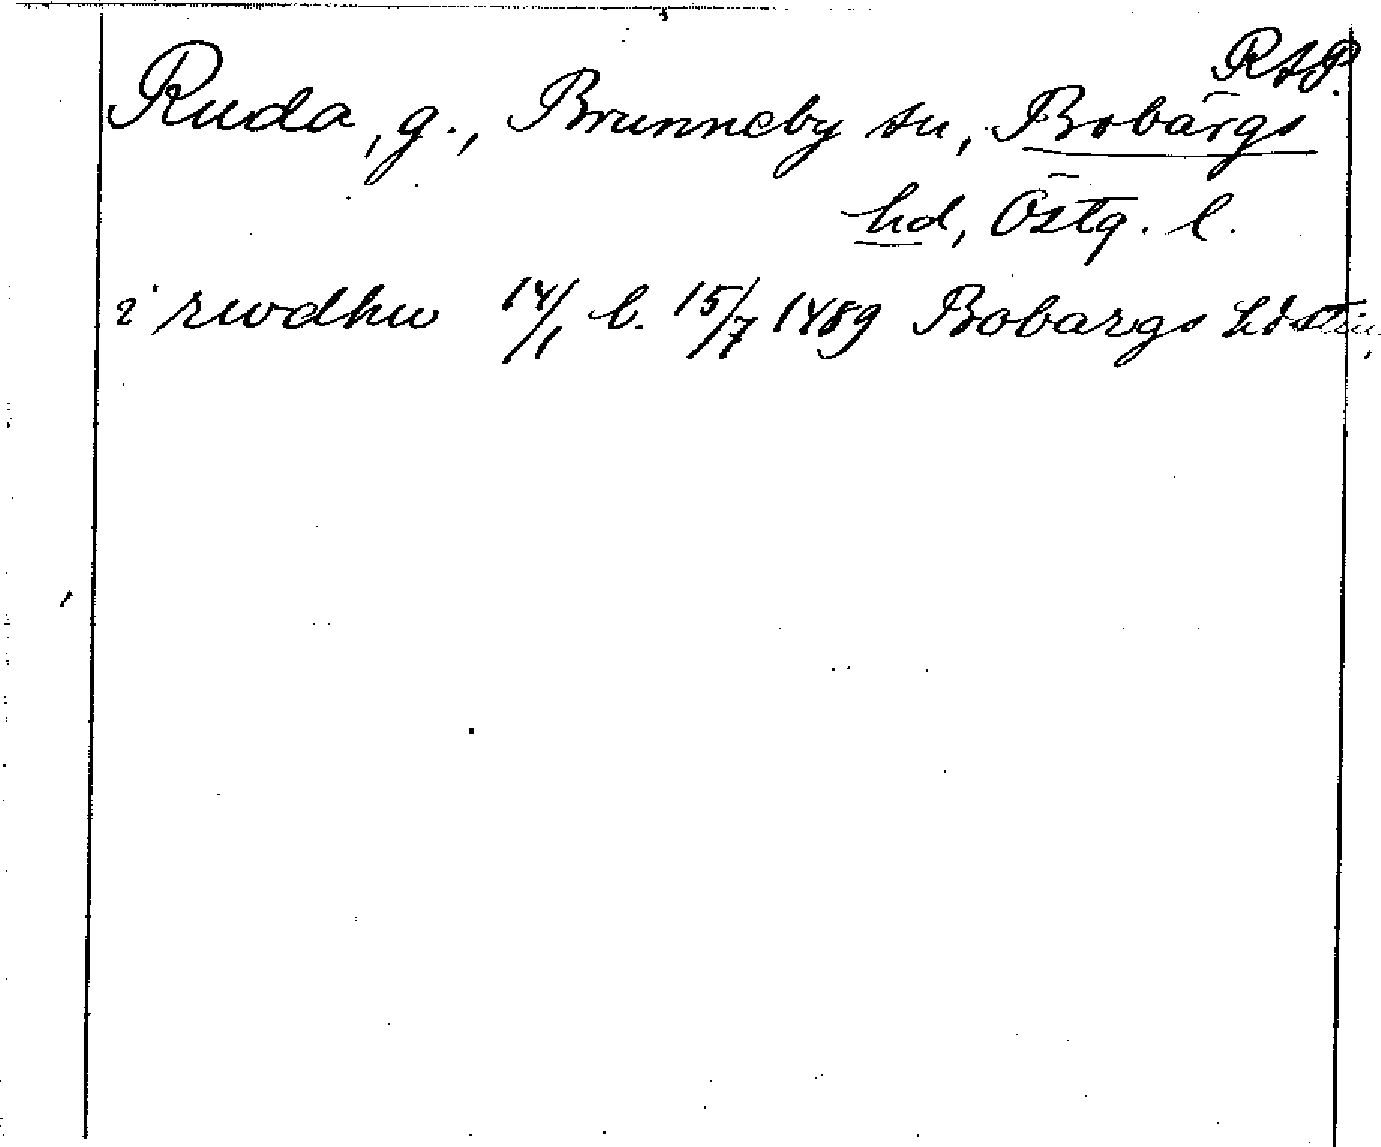 RAP.
Ruda, g., Brunneby sn, Bobärgs
hd, Östg. l.
i rwdhw 14/1 b. 15/7 1489 Bobargs